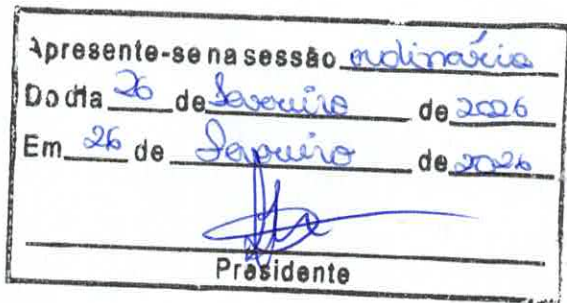 Apresente-se na sessão ordinária
Do dia 26 de Fevereiro de 2026
Em 26 de Fevereiro de 2026
Presidente